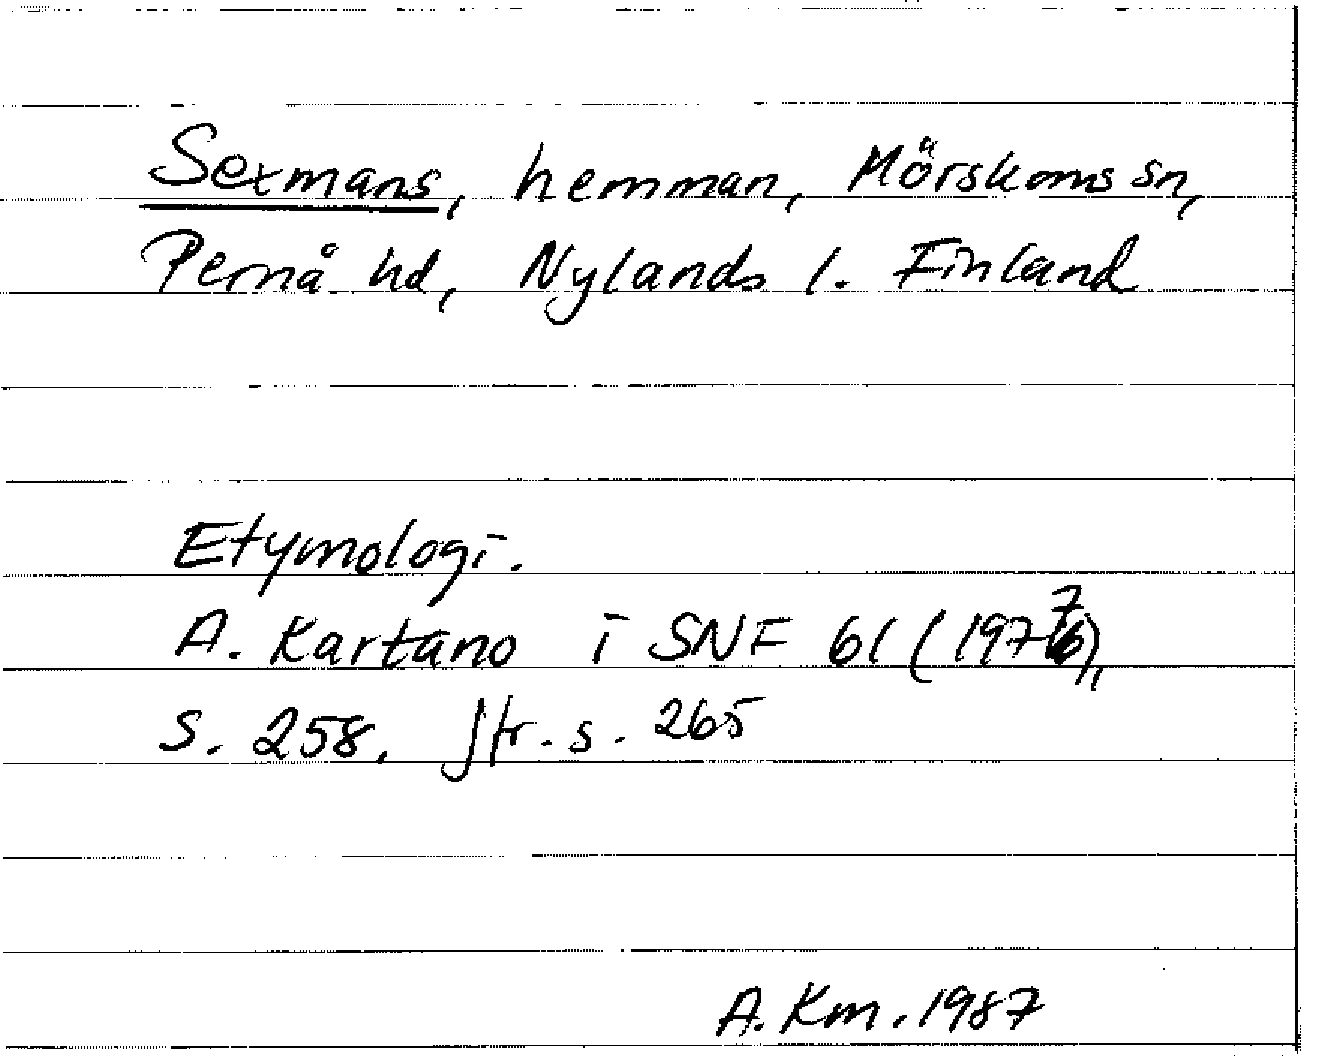 Sexmans, hemman, Mörskoms sn,
Pernå hd, Nylands l. Finland
Etymologi.
A. Kartano i SNF 61 (1977),
s. 258. Jfr. s. 265
A. Km. 1987